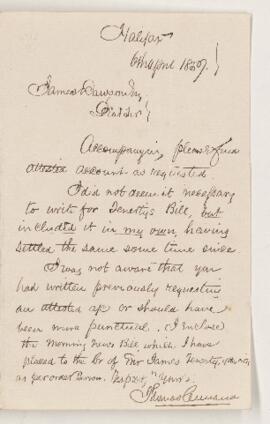 Halifax
6th April 1859
James Dawson Esq
Dear Sir
Accompanying please find
attested account as requested.
I did not deem it necessary
to write for Fenerty's Bill, but
included it in my own, having
settled the same some time since
I was not aware that you
had written previously requesting
an attested a/c or should have
been more punctual. I inclose
the Morning News Bill which I have
placed to the Cr of Mr James Fenerty,
as per order
Yours
Thomas